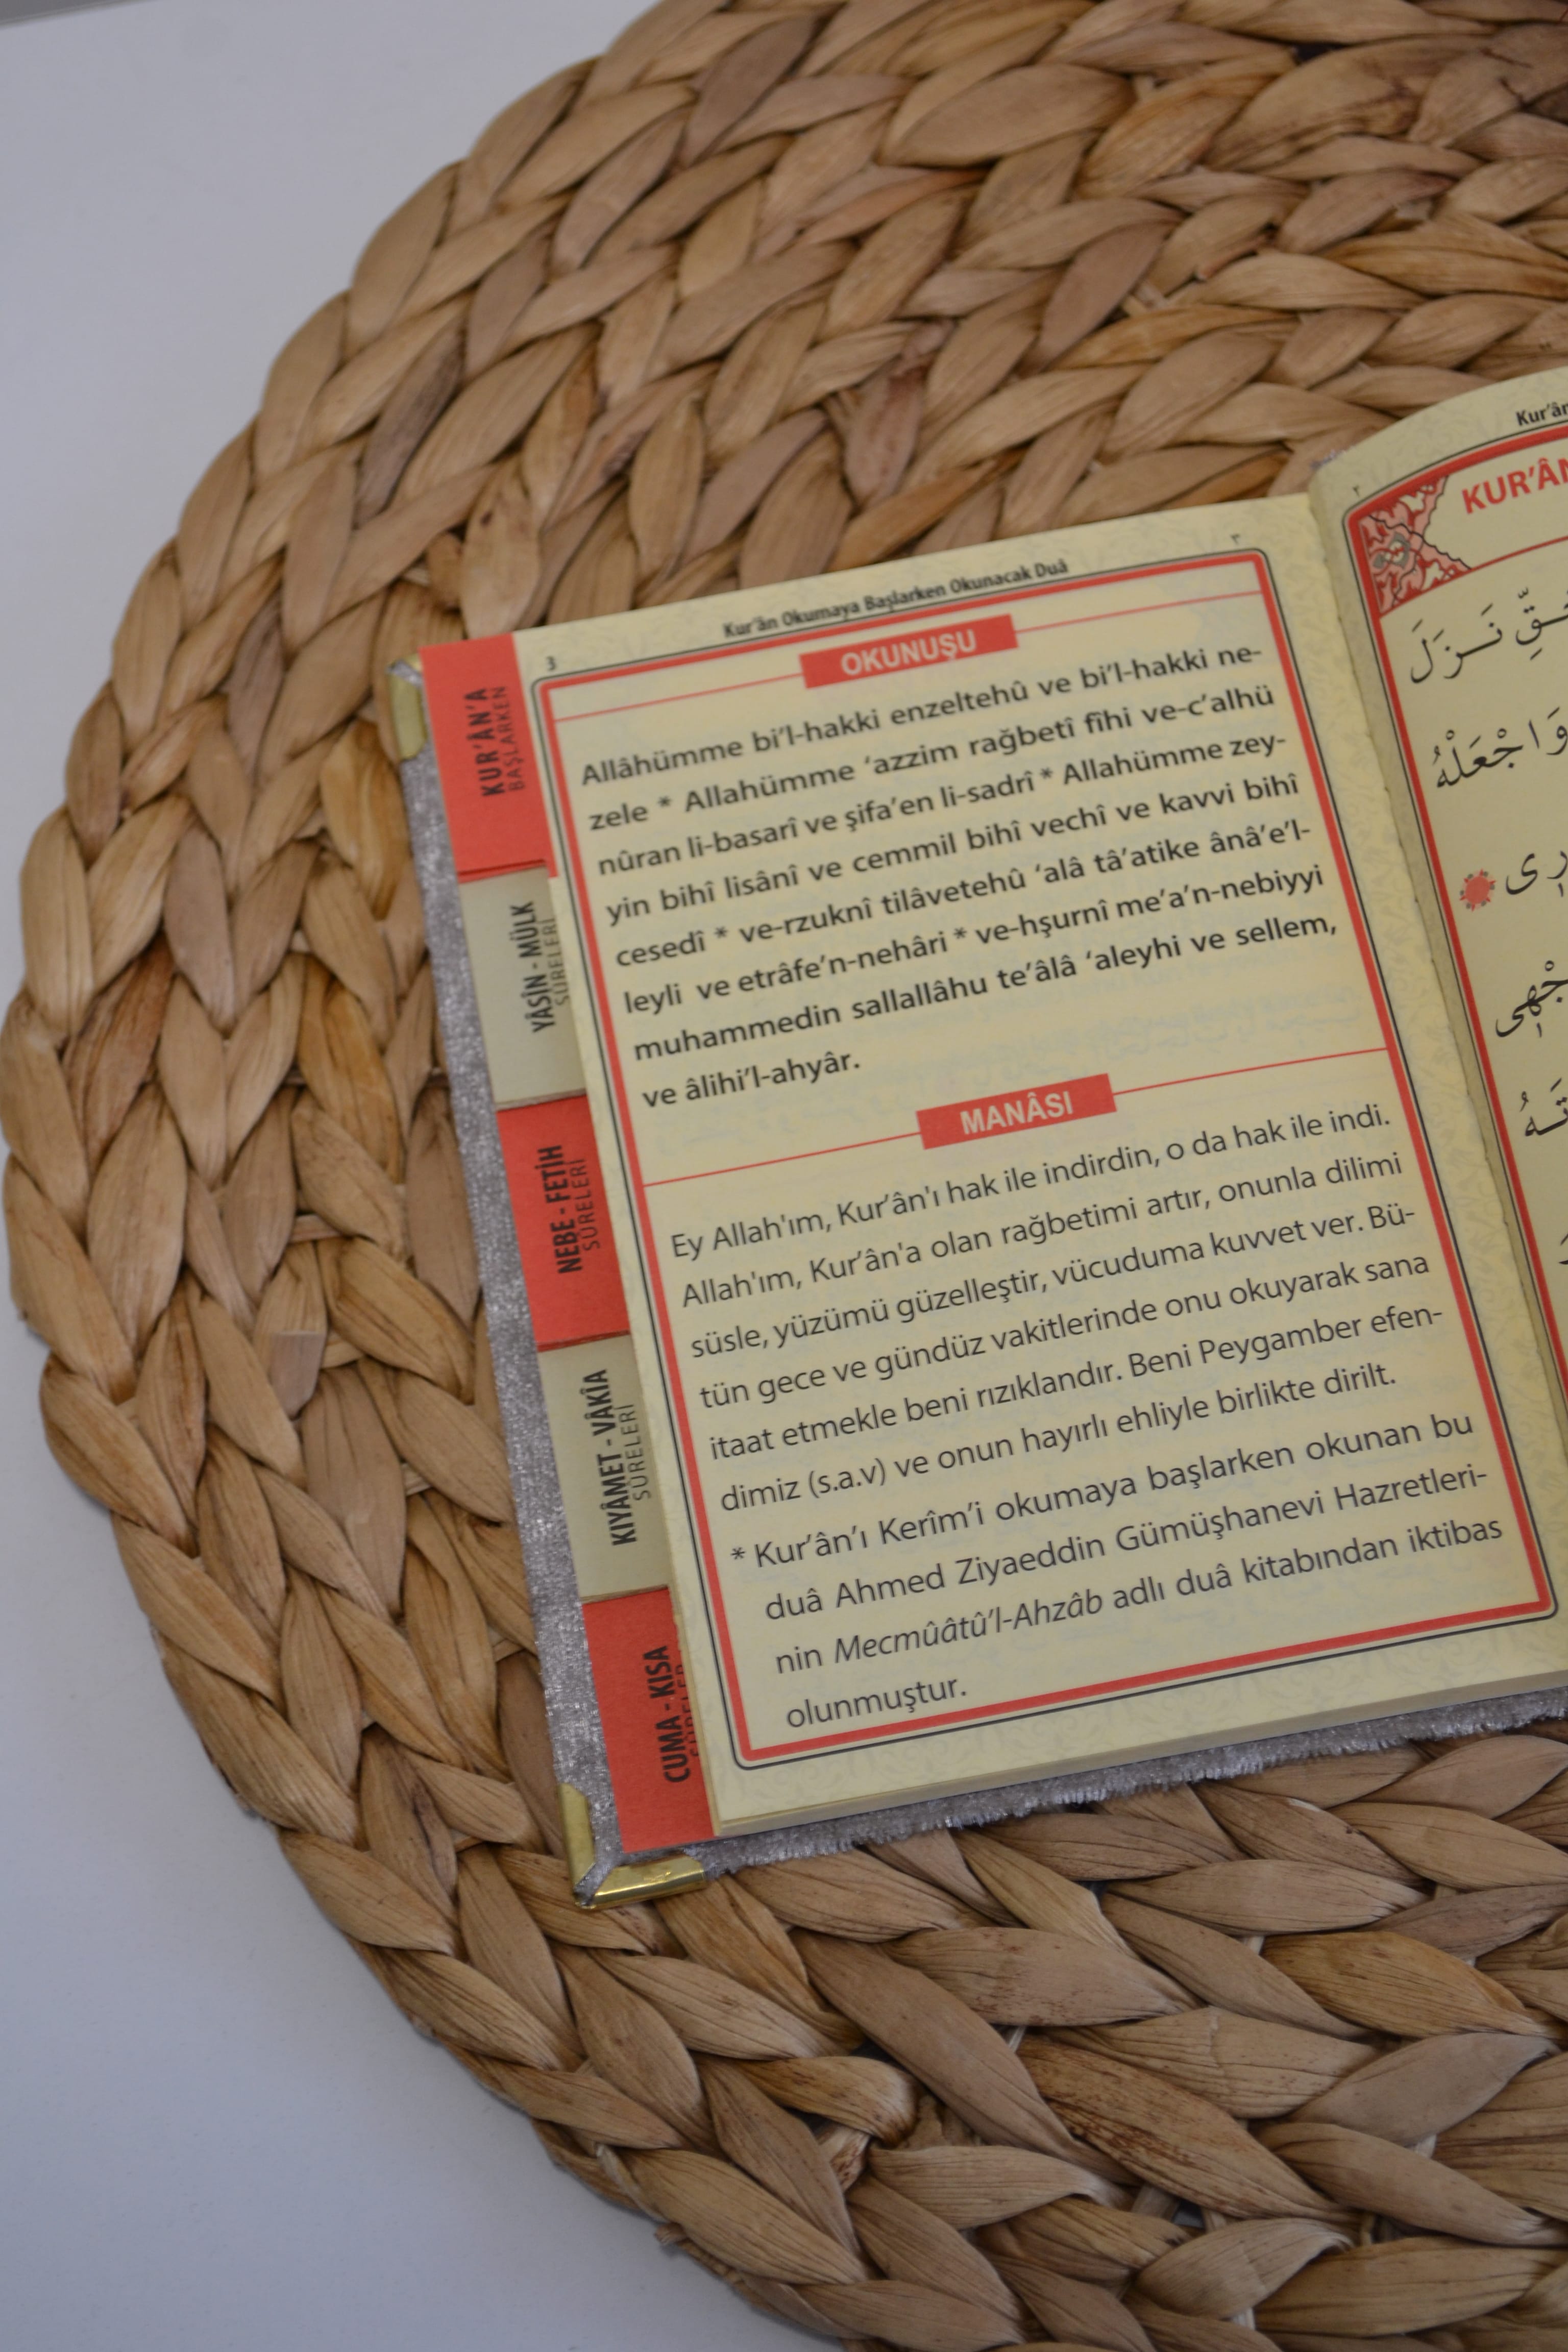 Kur'ân Okumaya Başlarken Okunacak Duâ
3
٣
OKUNUŞU
Allâhümme bi'l-hakki enzeltehû ve bi'l-hakki ne-
zele * Allahümme 'azzim rağbetî fîhi ve-c'alhü
nûran li-basarî ve şifa'en li-sadrî * Allahümme zey-
yin bihî lisânî ve cemmil bihî vechî ve kavvi bihî
cesedî * ve-rzuknî tilâvetehû 'alâ tâ'atike ânâ'e'l-
leyli ve etrâfe'n-nehâri * ve-hşurnî me'a'n-nebiyyi
muhammedin sallallâhu te'âlâ 'aleyhi ve sellem,
ve âlihi'l-ahyâr.
MANÂSI
Ey Allah'ım, Kur'ân'ı hak ile indirdin, o da hak ile indi.
Allah'ım, Kur'ân'a olan rağbetimi artır, onunla dilimi
süsle, yüzümü güzelleştir, vücuduma kuvvet ver. Bü-
tün gece ve gündüz vakitlerinde onu okuyarak sana
itaat etmekle beni rızıklandır. Beni Peygamber efen-
dimiz (s.a.v) ve onun hayırlı ehliyle birlikte dirilt.
* Kur'ân'ı Kerîm'i okumaya başlarken okunan bu
duâ Ahmed Ziyaeddin Gümüşhanevi Hazretleri-
nin Mecmûâtû'l-Ahzâb adlı duâ kitabından iktibas
olunmuştur.
KUR'ÂN'A
BAŞLARKEN
YÂSİN - MÜLK
SÛRELERİ
NEBE - FETİH
SÛRELERİ
KIYÂMET - VÂKİA
SÛRELERİ
CUMA - KISA
SÛRELER
٢
نَزَلَ
وَاجْعَلْهُ